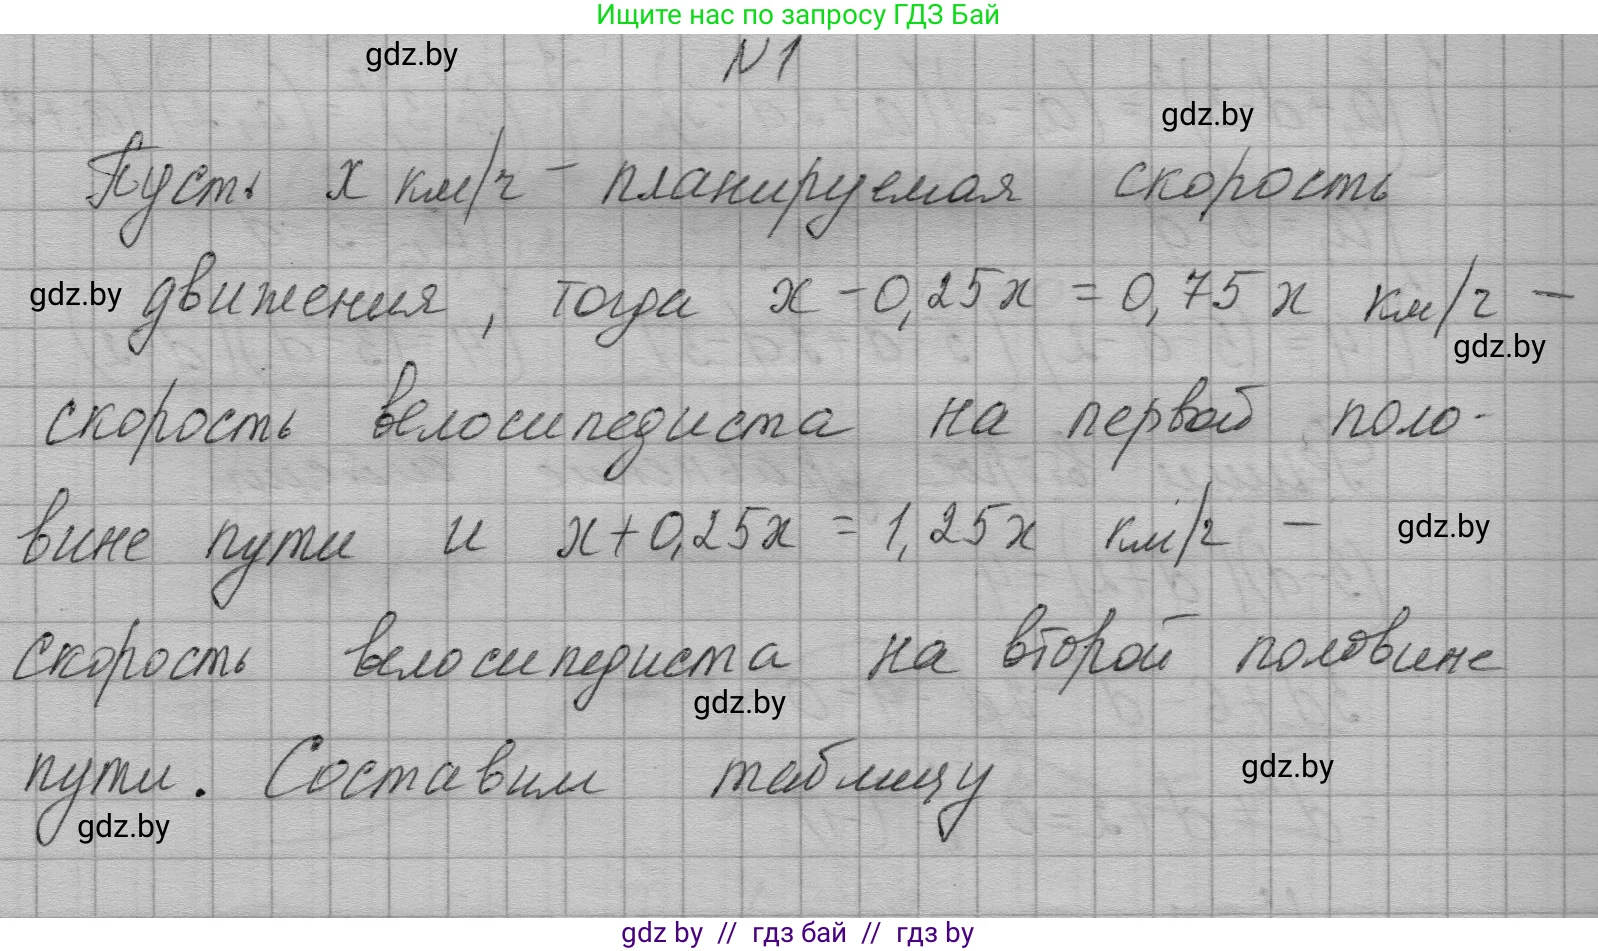 Ищите нас по запросу ГДЗ Бай
gdz.by
N1
gdz.by
Пусть x км/ч - планируемая скорость
gdz.by
движения, тогда x - 0,25x = 0,75x км/ч -
gdz.by
скорость велосипедиста на первой поло-
вине пути и x+0,25x = 1,25x км/ч -
gdz.by
скорость велосипедиста на второй половине
gdz.by
пути. Составим таблицу
gdz.by
gdz.by
gdz by // гдз бай // гдз by